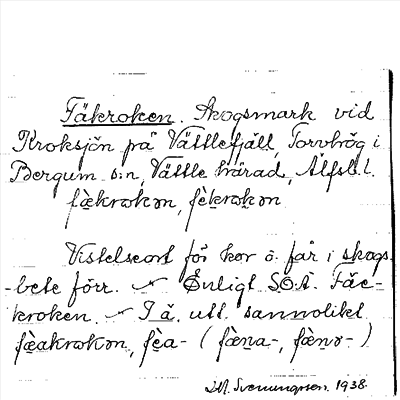 Fäkroken. Skogsmark vid
Kroksjön på Vättlefjäll, Torvhög i
Bergum s:n, Vättle härad, Älfsb. l.
fèkrokən, fèkrokən
Vistelseort för kor o. får i skogs-
-bete förr. Enligt SOÄ. Fäe-
kroken. I ä. utt. sannolikt
fèakrokən, fèa- (fæna-, fæno-)
Svenungsson. 1938.